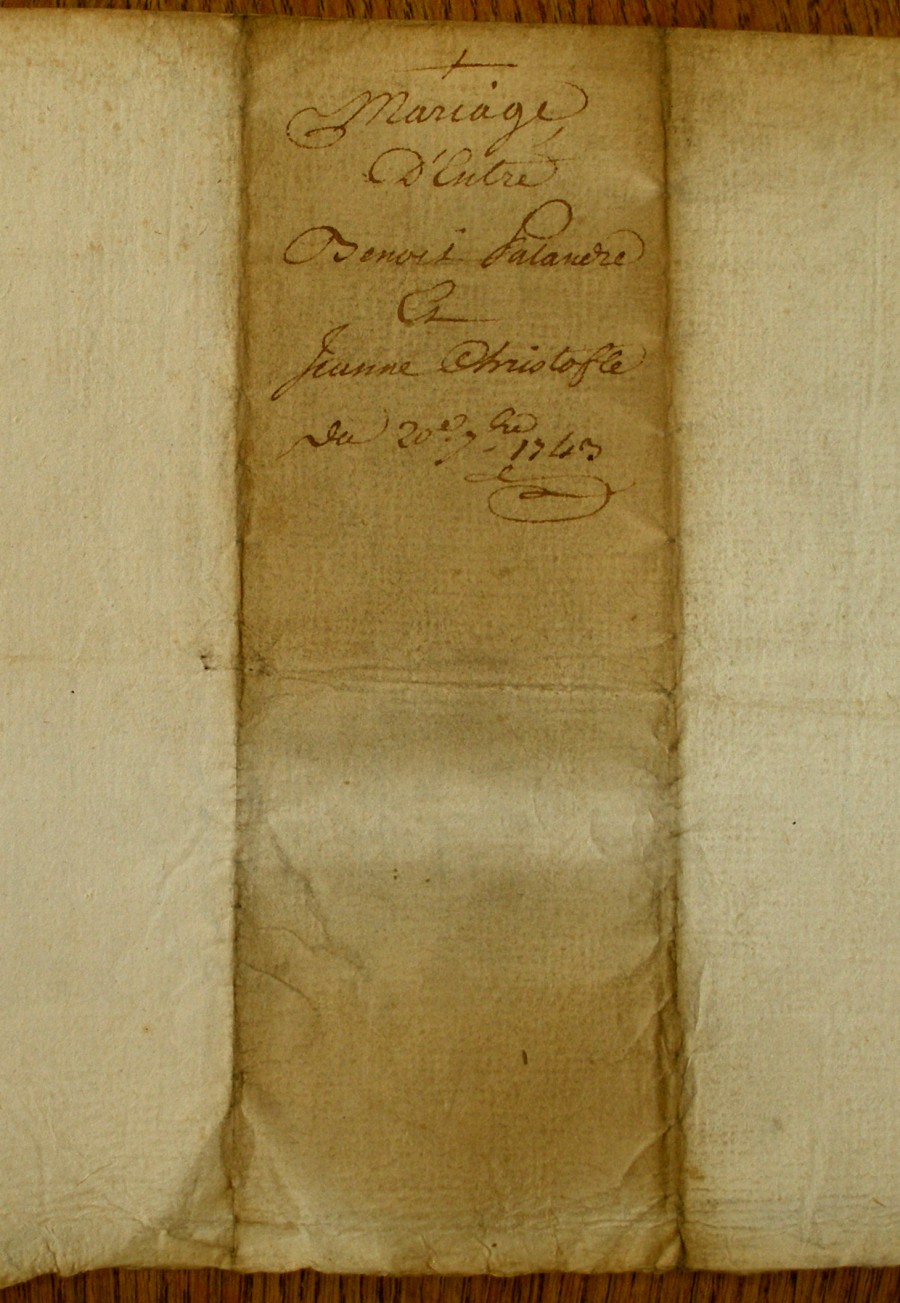 Mariage
D'Entre
Benoit Palandre
Et
Jeanne Christofle
Du 20e 7bre 1743